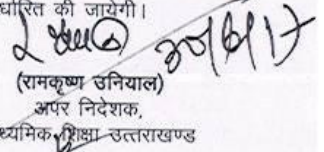 र्धारित की जायेगी।
(रामकृष्ण उनियाल)
अपर निदेशक,
ध्यमिक शिक्षा उत्तराखण्ड